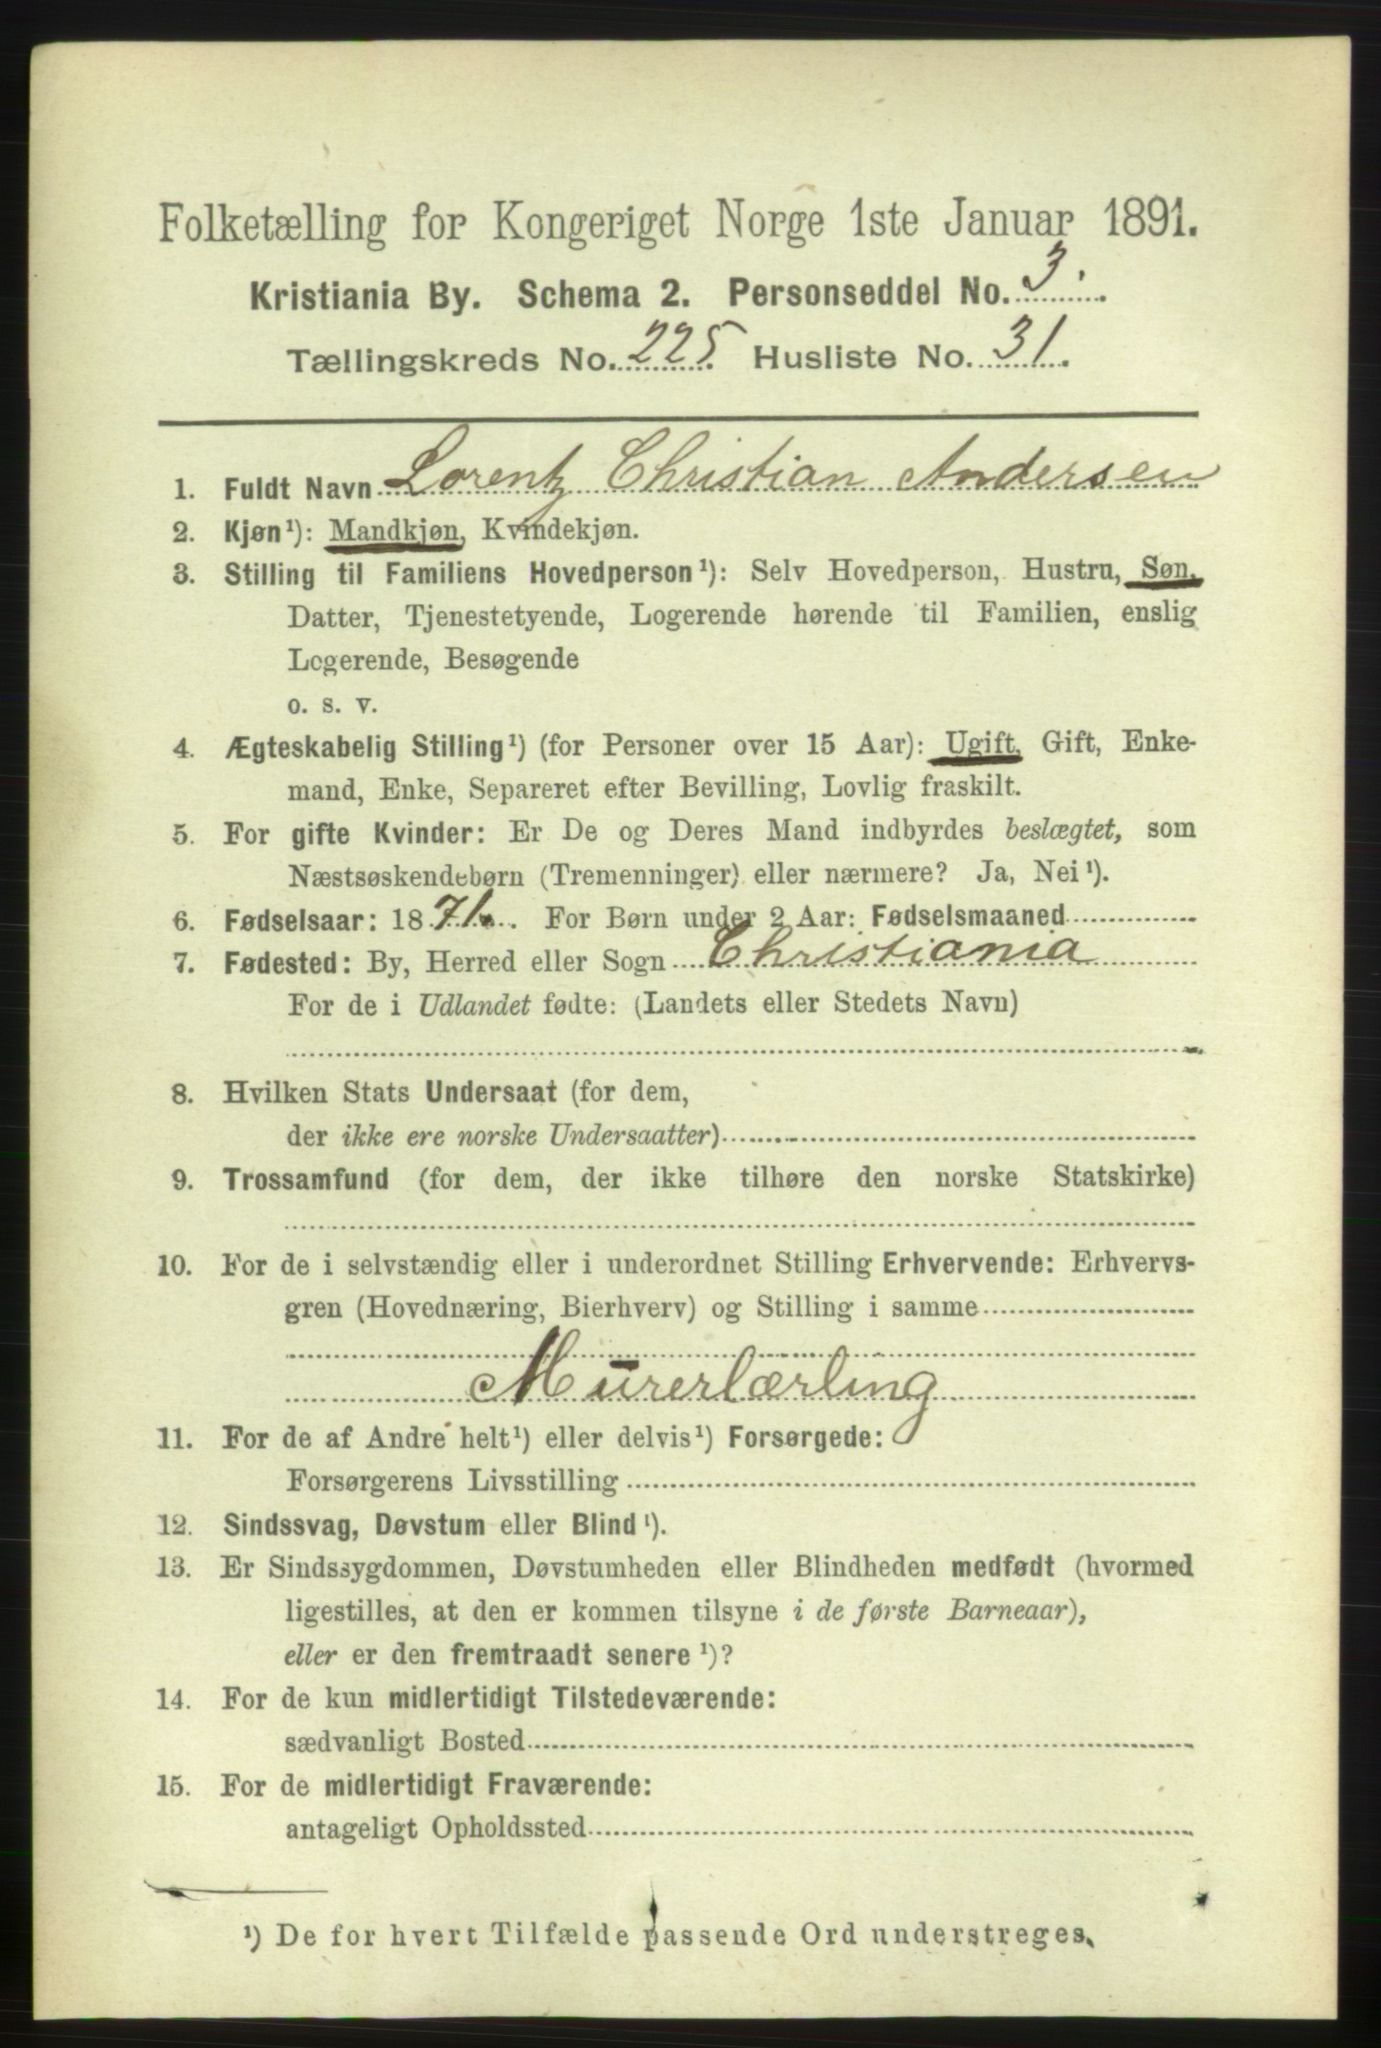 Folketælling for Kongeriget Norge 1ste Januar 1891.
Kristiania By. Schema 2. Personseddel No. 3.
Tællingskreds No. 225. Husliste No. 31.
1. Fuldt Navn Lorentz Christian Andersen
2. Kjøn¹): Mandkjøn, Kvindekjøn.
3. Stilling til Familiens Hovedperson¹): Selv Hovedperson, Hustru, Søn,
Datter, Tjenestetyende, Logerende hørende til Familien, enslig
Logerende, Besøgende
o. s. v.
4. Ægteskabelig Stilling¹) (for Personer over 15 Aar): Ugift, Gift, Enke-
mand, Enke, Separeret efter Bevilling, Lovlig fraskilt.
5. For gifte Kvinder: Er De og Deres Mand indbyrdes beslægtet, som
Næstsøskendebørn (Tremenninger) eller nærmere? Ja, Nei¹).
6. Fødselsaar: 1871. For Børn under 2 Aar: Fødselsmaaned
7. Fødested: By, Herred eller Sogn Christiania
For de i Udlandet fødte: (Landets eller Stedets Navn)
8. Hvilken Stats Undersaat (for dem,
der ikke ere norske Undersaatter)
9. Trossamfund (for dem, der ikke tilhøre den norske Statskirke)
10. For de i selvstændig eller i underordnet Stilling Erhvervende: Erhvervs-
gren (Hovednæring, Bierhverv) og Stilling i samme
Murerlærling
11. For de af Andre helt¹) eller delvis¹) Forsørgede:
Forsørgerens Livsstilling
12. Sindssvag, Døvstum eller Blind¹).
13. Er Sindssygdommen, Døvstumheden eller Blindheden medfødt (hvormed
ligestilles, at den er kommen tilsyne i de første Barneaar),
eller er den fremtraadt senere¹)?
14. For de kun midlertidigt Tilstedeværende:
sædvanligt Bosted
15. For de midlertidigt Fraværende:
antageligt Opholdssted
¹) De for hvert Tilfælde passende Ord understreges.